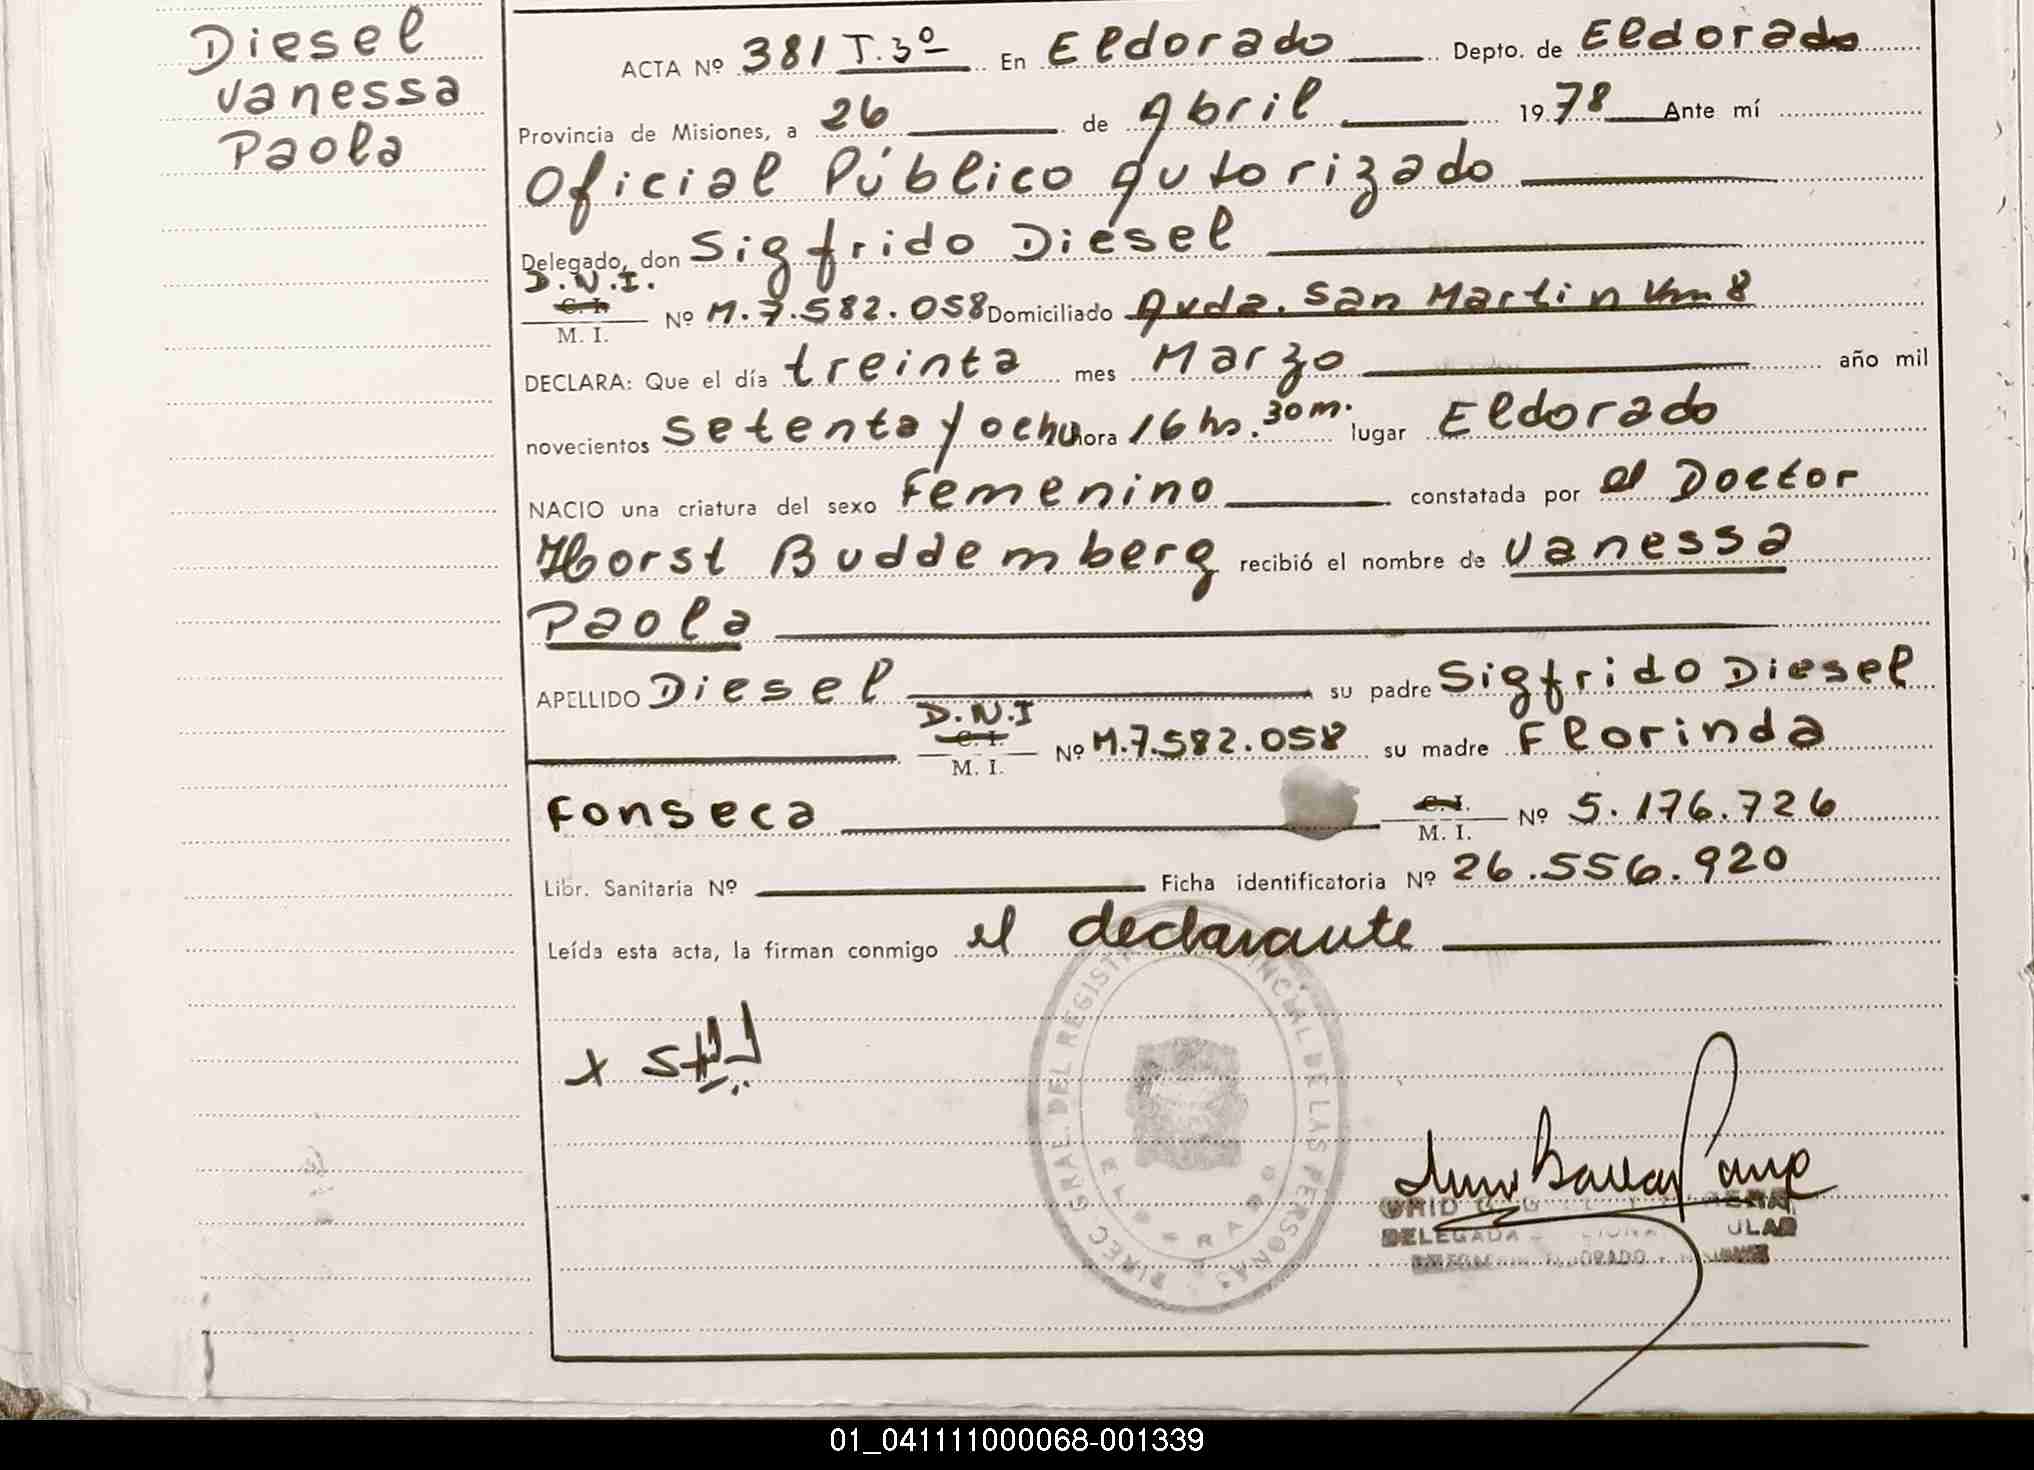 Diesel
Vanessa
Paola
ACTA Nº 381 T.3º En Eldorado Depto. de Eldorado
Provincia de Misiones, a 26 de Abril 1978 Ante mí
Oficial Público Autorizado
Delegado, don Sigfrido Diesel
D.N.I.
C. I.
M. I. Nº M.7.582.058 Domiciliado Avda. San Martin Km 8
DECLARA: Que el día treinta mes Marzo año mil
novecientos setenta y ocho hora 16 hs. 30 m. lugar Eldorado
NACIO una criatura del sexo Femenino constatada por el Doctor
Horst Buddemberg recibió el nombre de Vanessa
Paola
APELLIDO Diesel su padre Sigfrido Diesel
D.N.I
C. I.
M. I. Nº M.7.582.058 su madre Florinda
Fonseca C. I.
M. I. Nº 5.176.726
Libr. Sanitaria Nº Ficha identificatoria Nº 26.556.920
Leída esta acta, la firman conmigo el declarante
X
DIREC. GRAL. DEL REGIST INCIAL DE LAS PERSONAS
ELDORADO
DELEGADA
01_041111000068-001339